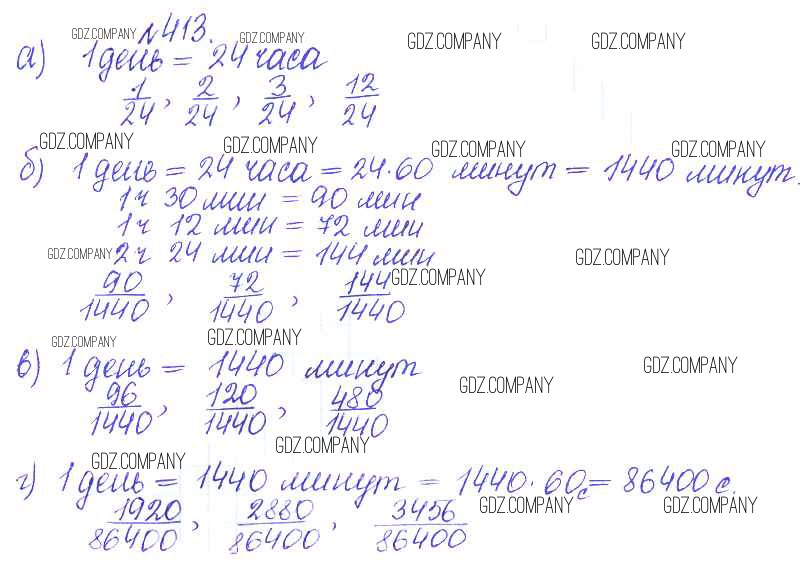 GDZ.COMPANY №413. GDZ.COMPANY GDZ.COMPANY GDZ.COMPANY
а) 1 день = 24 часа
1/24, 2/24, 3/24, 12/24
GDZ.COMPANY GDZ.COMPANY GDZ.COMPANY GDZ.COMPANY
б) 1 день = 24 часа = 24·60 минут = 1440 минут.
1 ч 30 мин = 90 мин
1 ч 12 мин = 72 мин
GDZ.COMPANY 2 ч 24 мин = 144 мин GDZ.COMPANY
90/1440, 72/1440, 144/1440 GDZ.COMPANY
GDZ.COMPANY GDZ.COMPANY
в) 1 день = 1440 минут GDZ.COMPANY
96/1440, 120/1440, 480/1440 GDZ.COMPANY
GDZ.COMPANY
GDZ.COMPANY
г) 1 день = 1440 минут = 1440·60 с = 86400 с.
1920/86400, 2880/86400, 3456/86400 GDZ.COMPANY GDZ.COMPANY